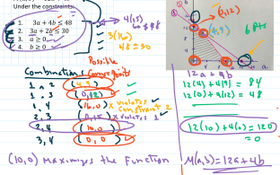 Under the constraints:
1. 3a + 4b ≤ 48
2. 3a + 2b ≤ 30
3. a ≥ 0
4. b ≥ 0
4(12)
≤ 48
3(16)
48 ≤ 30
(0,12)
6 pts
Possible
Combinations
1, 2 (4,9)
1, 3 (0,12)
1, 4 (16,0) x violates constraint 2
2, 3 (0,15) x violates
2, 4 (10,0)
3, 4 (0,0)
12a + 4b
12(4) + 4(9) = 84
12(0) + 4(12) = 48
12(10) + 4(0) = 120
= 0
(10,0) maximizes the function M(a,b) = 12a + 4b